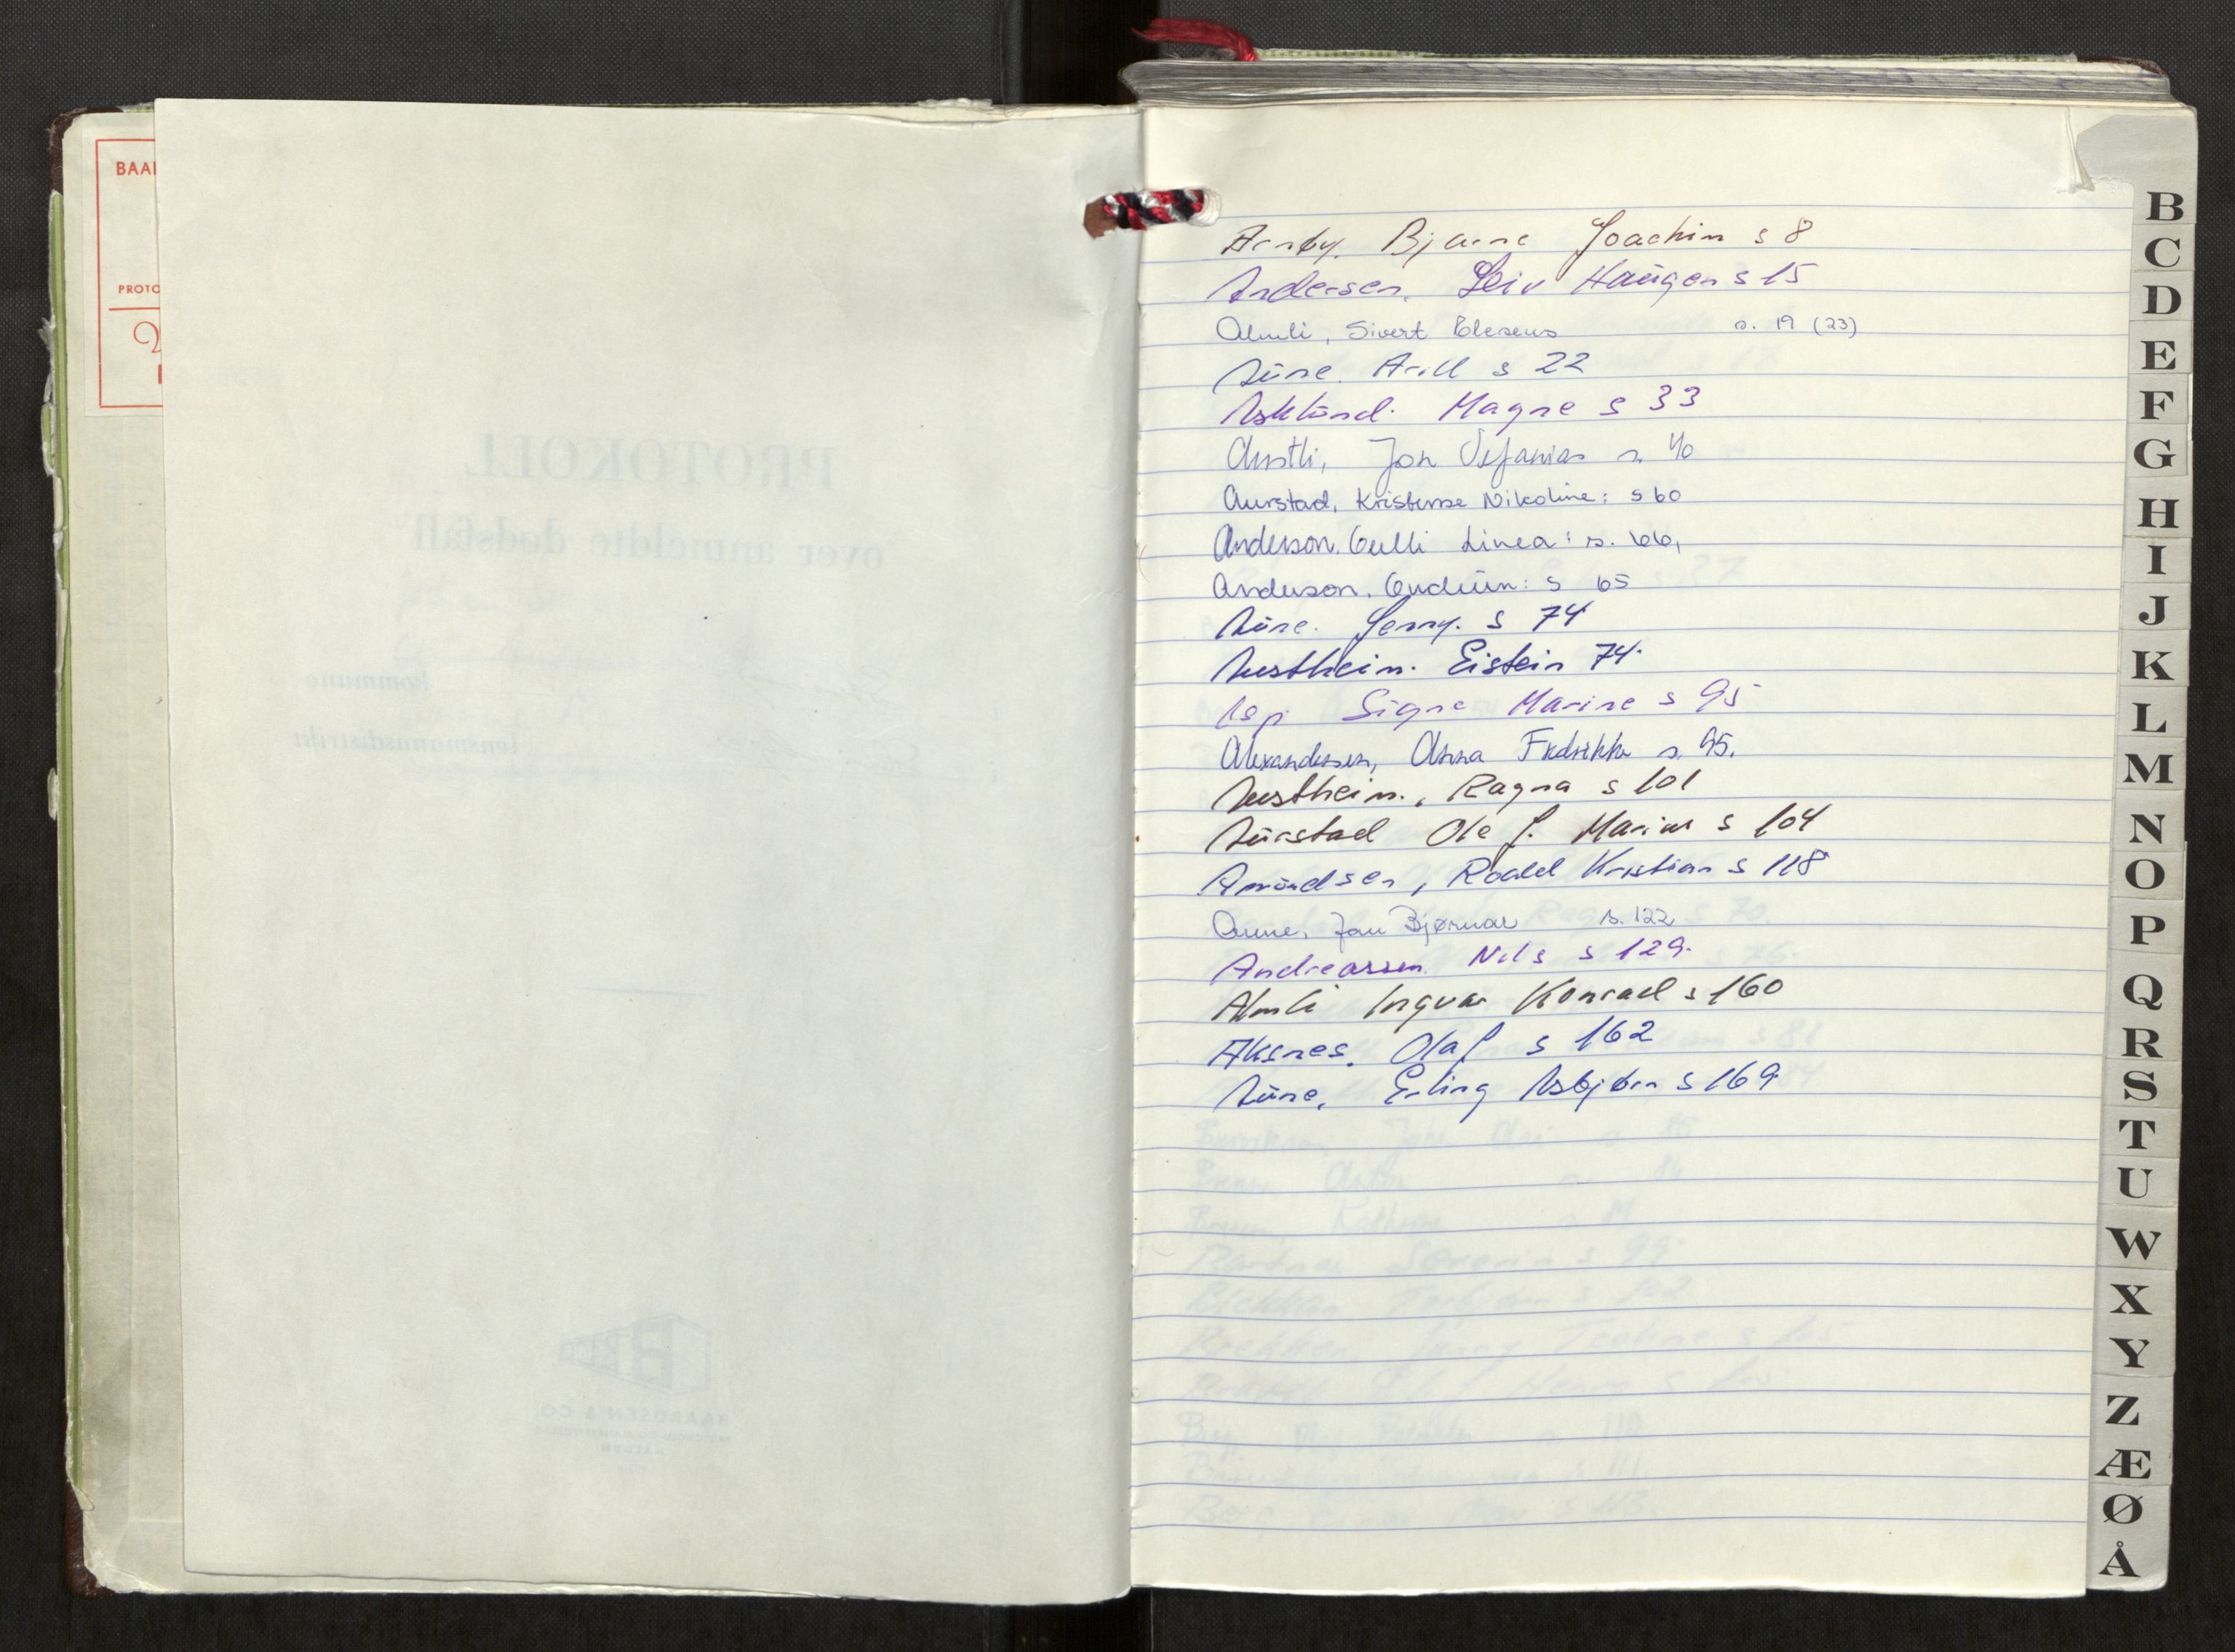 BAA
PROTO
PROTOKOLL
over anmeldte dødsfall
kommune
lensmannsdistrikt
BAARDSEN & CO
HALDEN
Arnøy, Bjarne Joachim s 8
Andersen, Leiv Haugen s 15
Almli, Sivert Eleseus s. 19 (23)
Aune. Arill s 22
Asklund. Magne s 33
Austli, Jon Sefanias s. 40
Aurstad, Kristense Nikoline: s 60
Anderson, Gulli Linea: s. 66,
Anderson, Gudrun: s 65
Aune. Jenny. s 74
Austheim. Eistein 74.
Asp. Signe Marine s 95
Alexandersen, Anna Fredrikke s. 95.
Austheim., Ragna s 101
Aurstad Ole J. Marius s 104
Amundsen, Roald Kristian s 118
Aune, Jan Bjørnar s. 122
Andreassen. Nils s 129.
Almli Ingvar Konrad s 160
Aksnes. Olaf s 162
Aune, Erling Asbjørn s 169
B
C
D
E
F
G
H
I
J
K
L
M
N
O
P
Q
R
S
T
U
W
X
Y
Z
Æ
Ø
Å